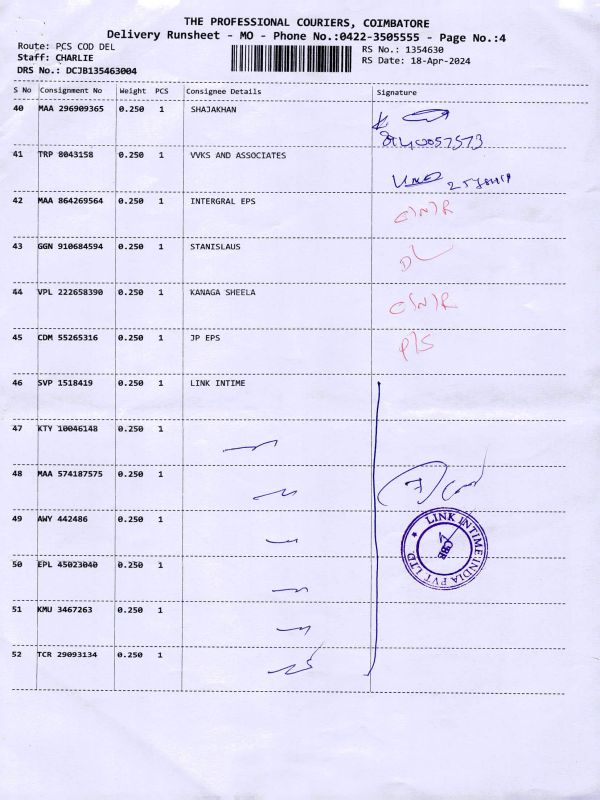 THE PROFESSIONAL COURIERS, COIMBATORE
Delivery Runsheet - MO - Phone No.:0422-3505555 - Page No.:4
Route: PCS COD DEL RS No.: 1354630
Staff: CHARLIE RS Date: 18-Apr-2024
DRS No.: DCJB135463004
S No Consignment No Weight PCS Consignee Details Signature
40 MAA 296909365 0.250 1 SHAJAKHAN
41 TRP 8043158 0.250 1 VVKS AND ASSOCIATES
42 MAA 864269564 0.250 1 INTERGRAL EPS C/N/R
43 GGN 910684594 0.250 1 STANISLAUS DL
44 VPL 222658390 0.250 1 KANAGA SHEELA C/N/R
45 CDM 55265316 0.250 1 JP EPS P/S
46 SVP 1518419 0.250 1 LINK INTIME
47 KTY 10046148 0.250 1
48 MAA 574187575 0.250 1
49 AWY 442486 0.250 1
LINK INTIME INDIA PVT LTD
CBE
50 EPL 45023040 0.250 1
51 KMU 3467263 0.250 1
52 TCR 29093134 0.250 1